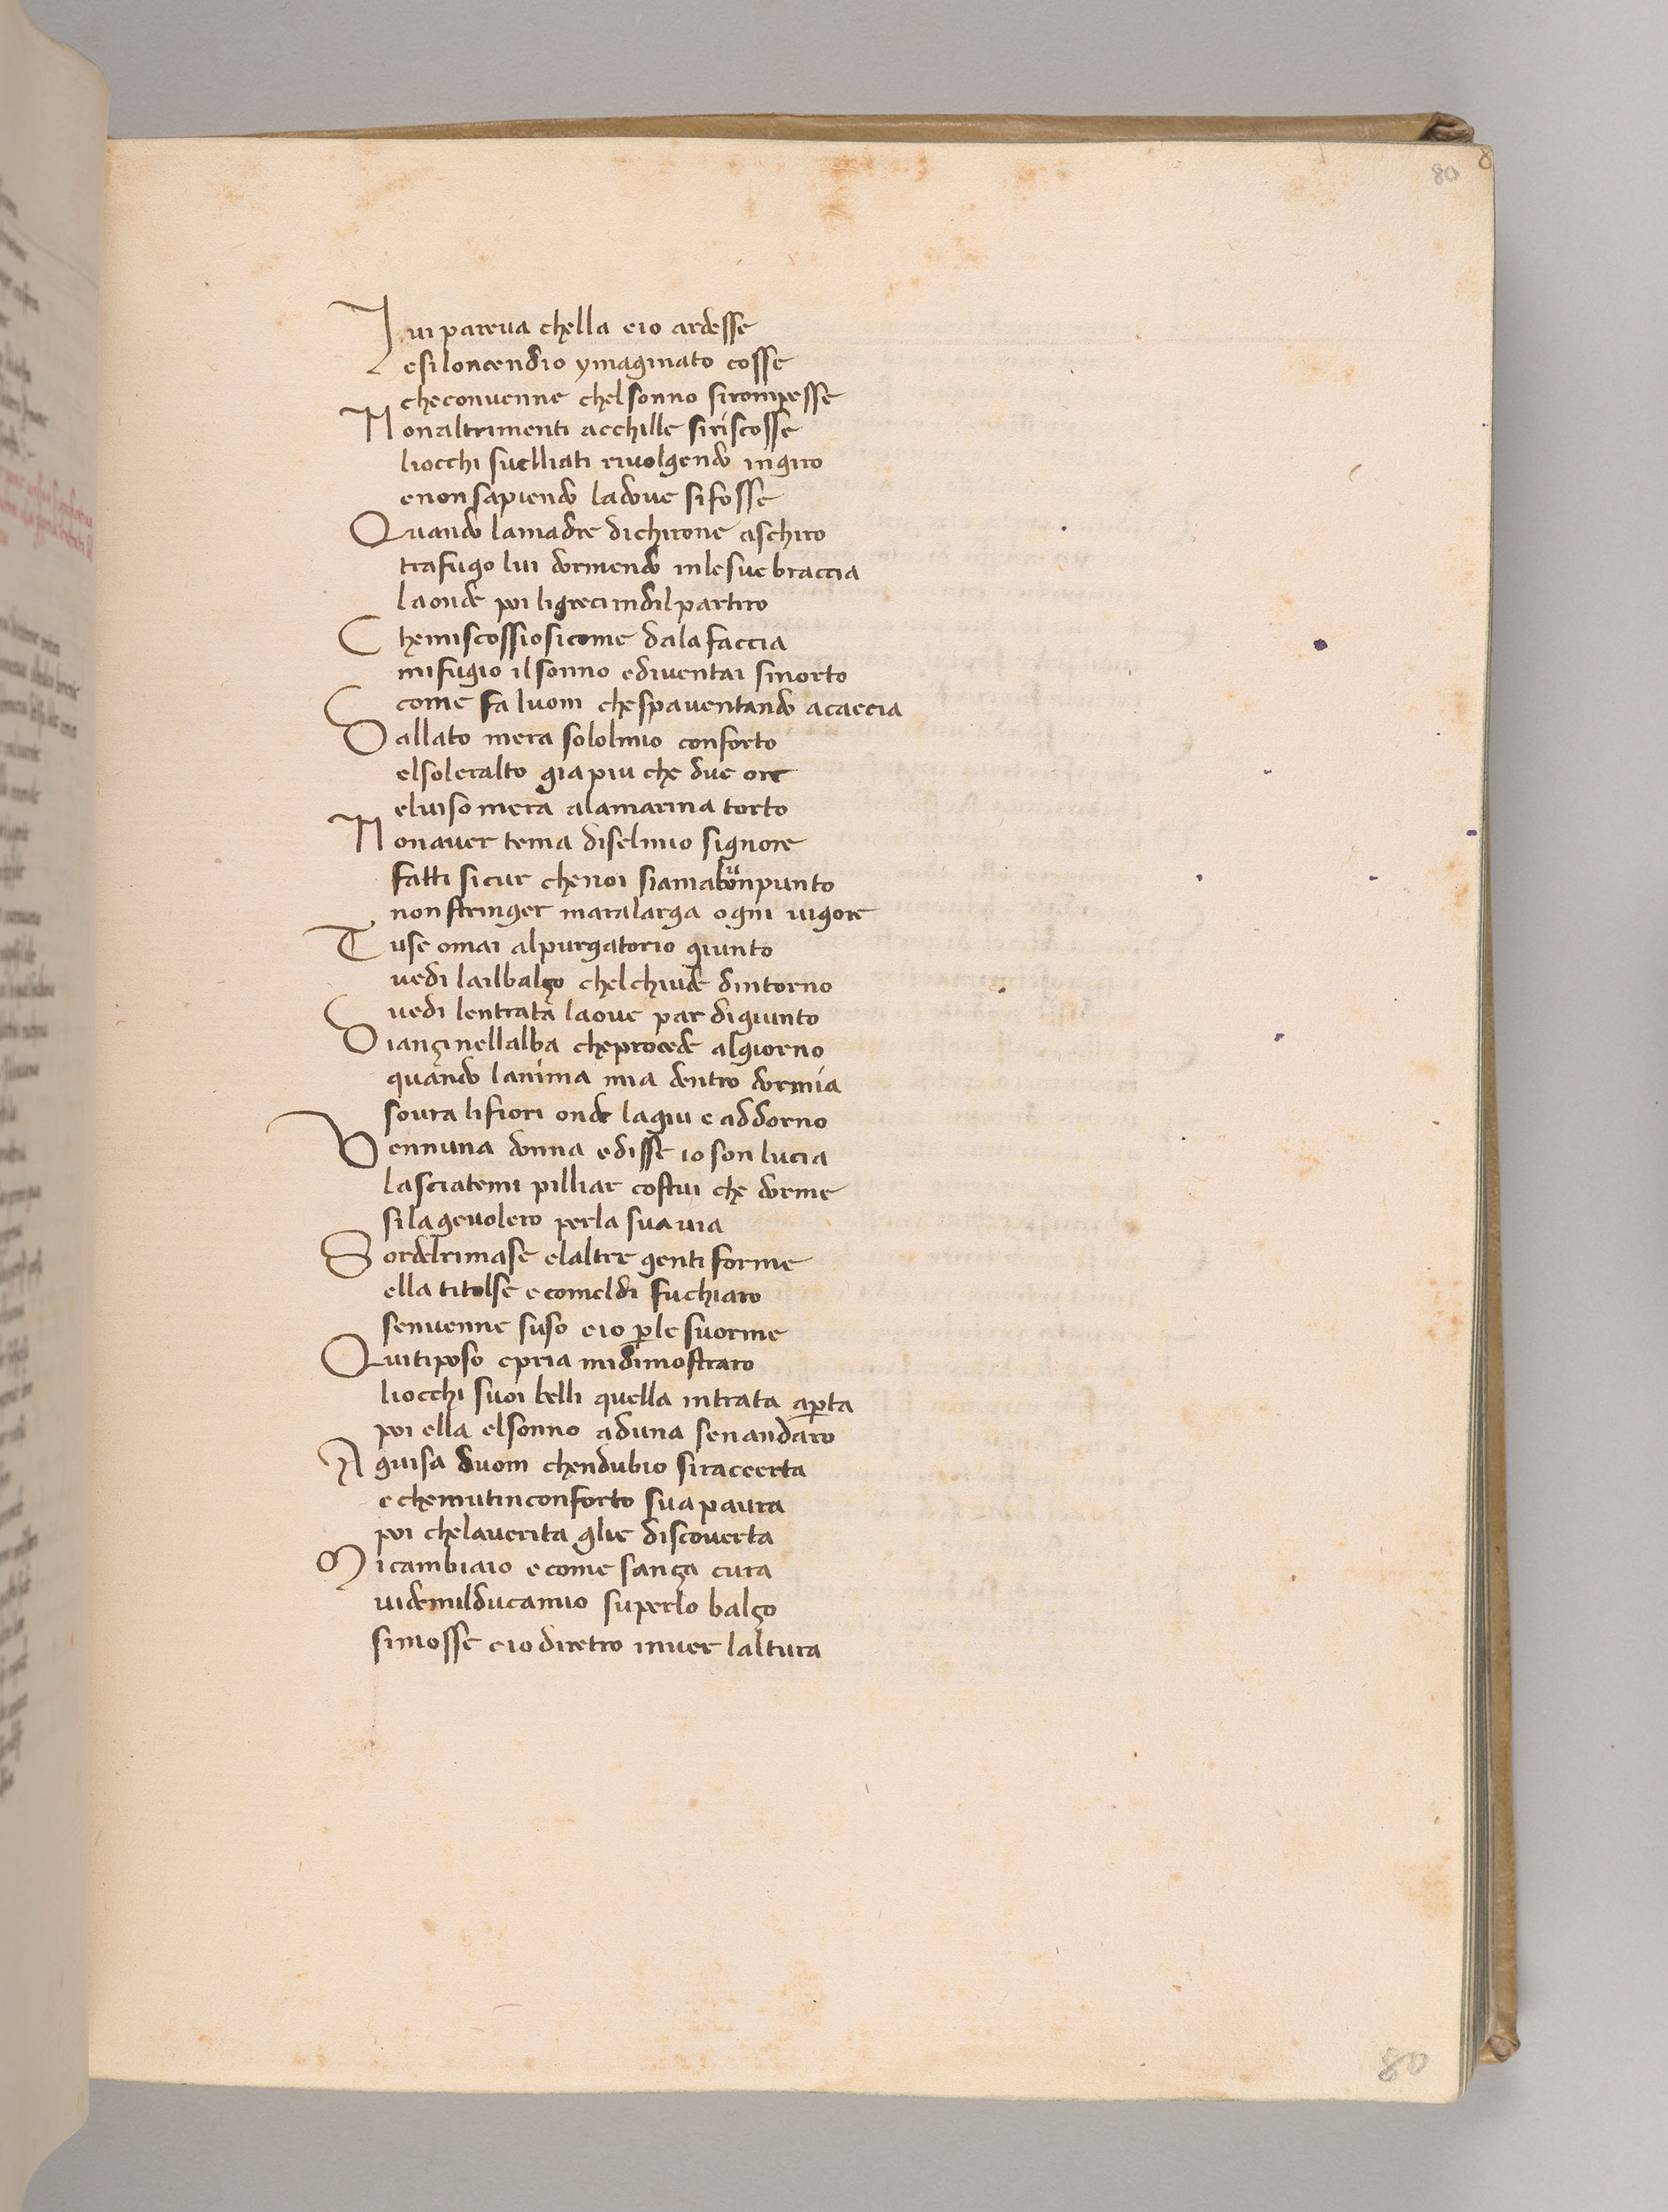 80
Iui pareua chella eio ardesse
esiloncendio ymaginato cosse
checonuenne chelsonno sirompesse
Nonaltrimenti acchille siriscosse
liocchi suelliati riuolgendo ingiro
enonsapiendo ladoue sifosse
Quando lamadre dichirone aschiro
trafugo lui dormendo inlesue braccia
laonde poi ligreci indilpartiro
Chemiscossiosicome dala faccia
mifugio ilsonno ediuentai smorto
come fa luom chespauentando acaccia
Dallato mera sololmio conforto
elsoleralto gia piu che due ore
eluiso mera alamarina torto
Nonauer tema diselmio signore
fatti sicur chenoi siama bonpunto
nonstringer maralarga ogni uigore
Tuse omai alpurgatorio giunto
uedi lailbalço chelchiude dintorno
uedi lentrata laoue par digiunto
Diançinellalba cheprocede algiorno
quando lanima mia dentro dormia
soura lifiori onde lagiu e addorno
Vennuna donna edisse io son lucia
lasciatemi pilliar costui che dorme
silageuolero perla sua uia
Sordelrimase elaltre genti forme
ella titolse ecomeldi fuchiaro
senuenne suso eio ple suorme
Quitiposo epria midimostraro
liocchi suoi belli quella intrata apta
poi ella elsonno aduna senandaro
A guisa duom chendubio siraccerta
echemutinconforto sua paura
poi chelauerita glie discouerta
Micambiaio ecome sança cura
uidemilducamio superlo balço
simosse eio diretro inuer laltura
80